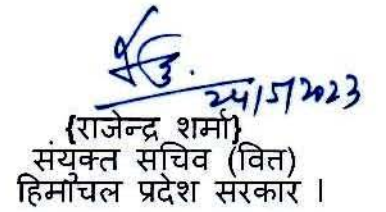 24/5/2023
{राजेन्द्र शर्मा}
संयुक्त सचिव (वित्त)
हिमाचल प्रदेश सरकार ।